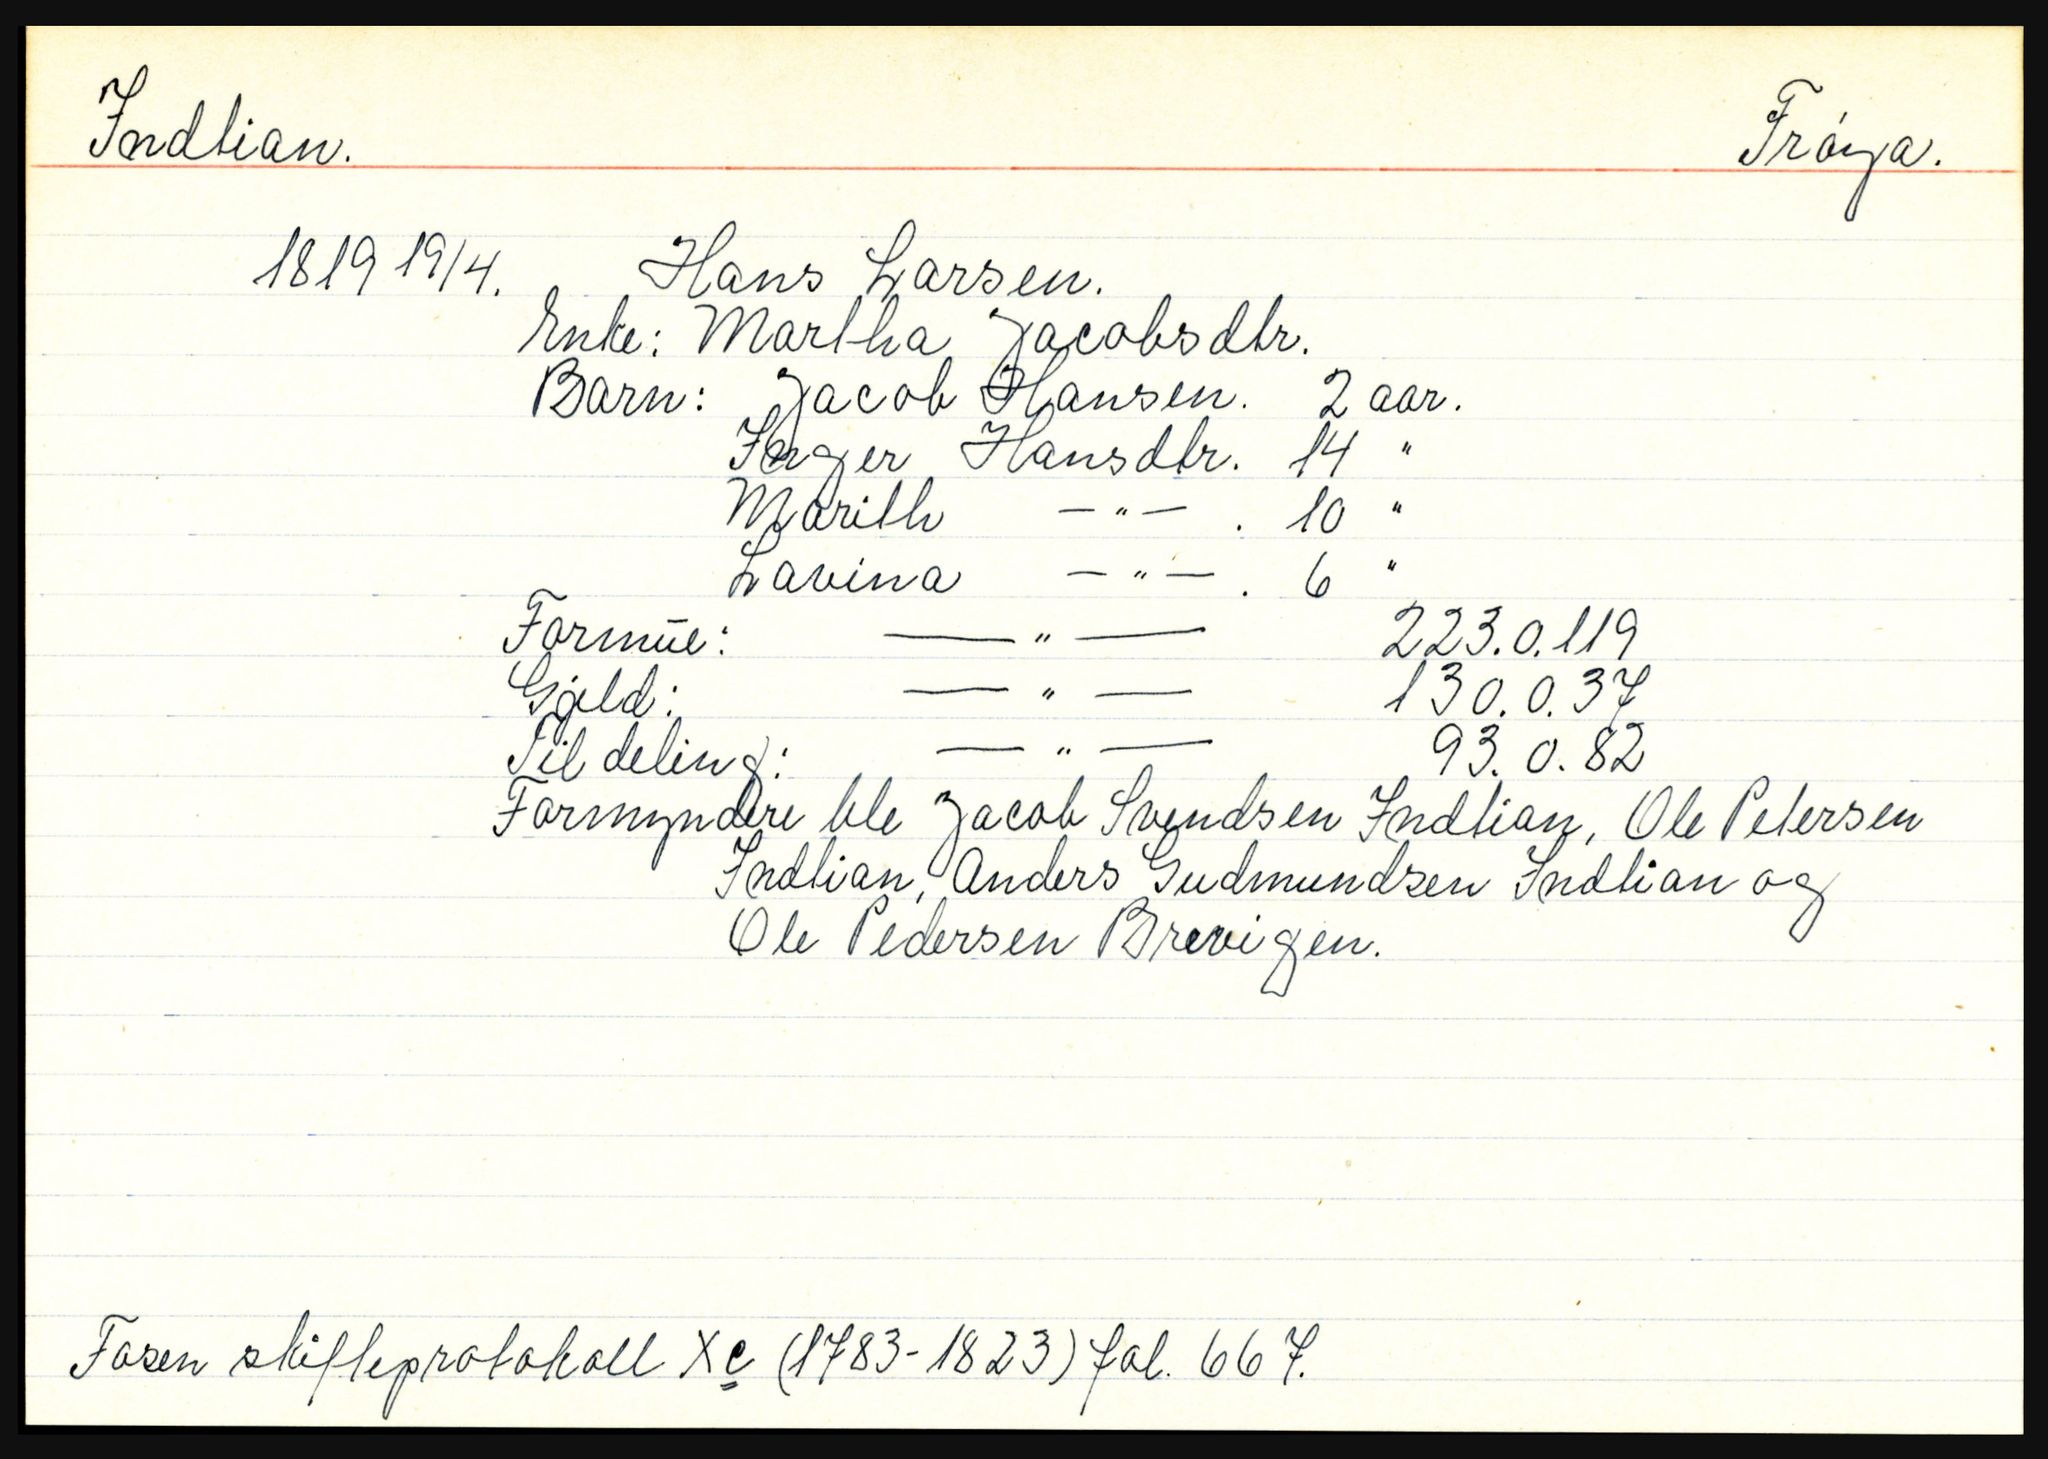 Indtian. Frøya.
1819 19/4. Hans Larsen.
Enke: Martha Jacobsdtr.
Barn: Jacob Hansen. 2 aar.
Inger Hansdtr. 14 "
Marith — " — . 10 "
Lavina — " — . 6 "
Formūe: — " — 223.0.119
Gjeld: — " — 130.0.37
Til deling: — " — 93.0.82
Formyndere ble Jacob Svendsen Indtian, Ole Petersen
Indtian, Anders Gudmundsen Indtian og
Ole Pedersen Brevigen.
Fosen skifteprotokoll Xc (1783-1823) fol. 667.